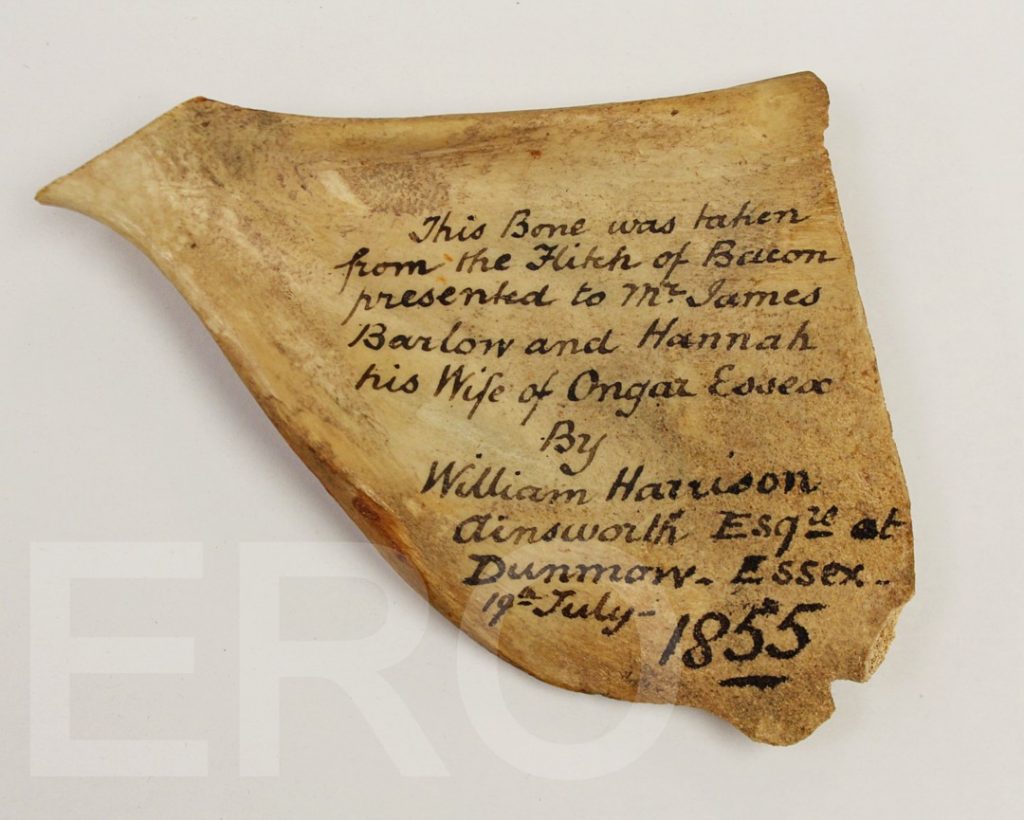 This Bone was taken
from the Flitch of Bacon
presented to Mr. James
Barlow and Hannah
his Wife of Ongar Essex
By
William Harrison
Ainsworth Esqre at
Dunmow - Essex -
19th July -
1855
ERO